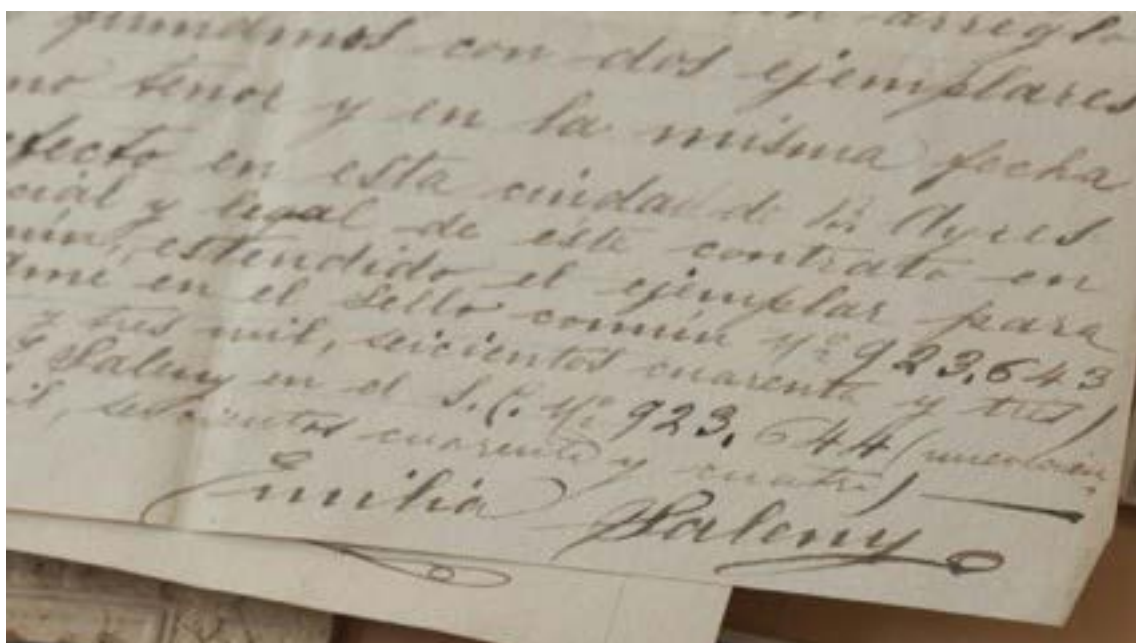 arreglo
con dos ejemplares
mo tenor y en la misma fecha
efecto en esta ciudad de Bs Ayres
cial y legal de este contrato en
estendido el ejemplar para
ame en el sello común Nº 923.643
y tres mil, seicientos cuarenta y tres)
Saleny en el S.C. Nº 923.644 (
il, seicientos cuarenta y cuatro)
Emilia Saleny